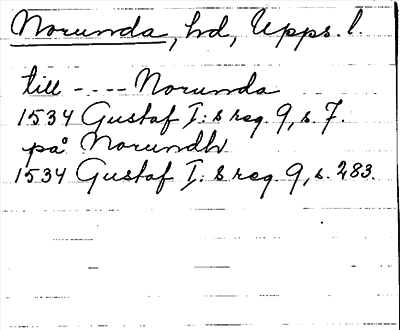 Norunda, hd, Upps. l.
till ---- Norunda
1534 Gustaf I:s reg. 9, s. 7.
på Norundh
1534 Gustaf I:s reg. 9, s. 283.